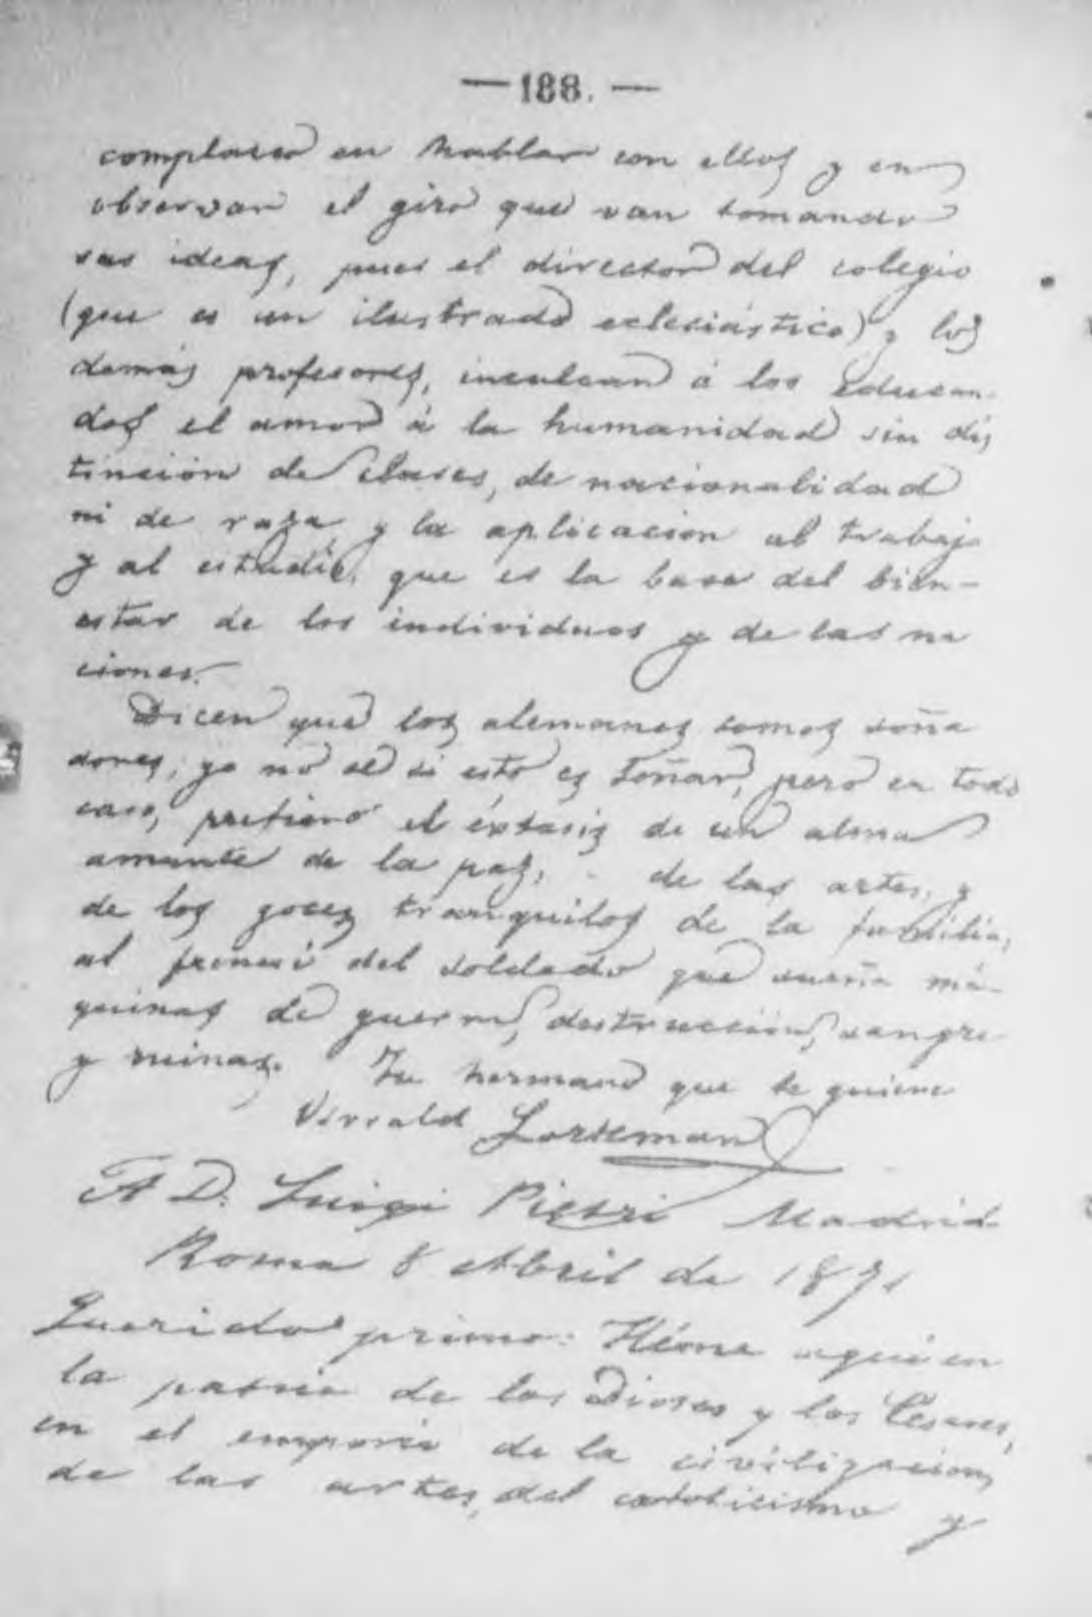 — 188. —
complazco en hablar con ellos y en
observar el giro que van tomando
sus ideas, pues el director del colegio
(que es un ilustrado eclesiástico) y los
demás profesores, inculcan á los educan-
dos el amor á la humanidad sin dis
tinción de clases, de nacionalidad
ni de raza, y la aplicacion al trabajo
y al estudio, que es la base del bien-
estar de los individuos y de las na
ciones.
Dicen que los alemanes somos soña
dores, yo no sé si esto es soñar, pero en todo
caso, prefiero el éxtasis de un alma
amante de la paz, de las artes, y
de los goces tranquilos de la familia,
al frenesí del soldado que sueña má-
quinas de guerra, destruccion, sangre
y ruinas. Tu hermano que te quiere
Lorseman
A D. Luigi Pietri Madrid
Roma 8 Abril de 1871
Querido primo: Héme aquí en
la patria de los Dioses y los Césares,
en el emporio de la civilizacion,
de las artes, del catolicismo y